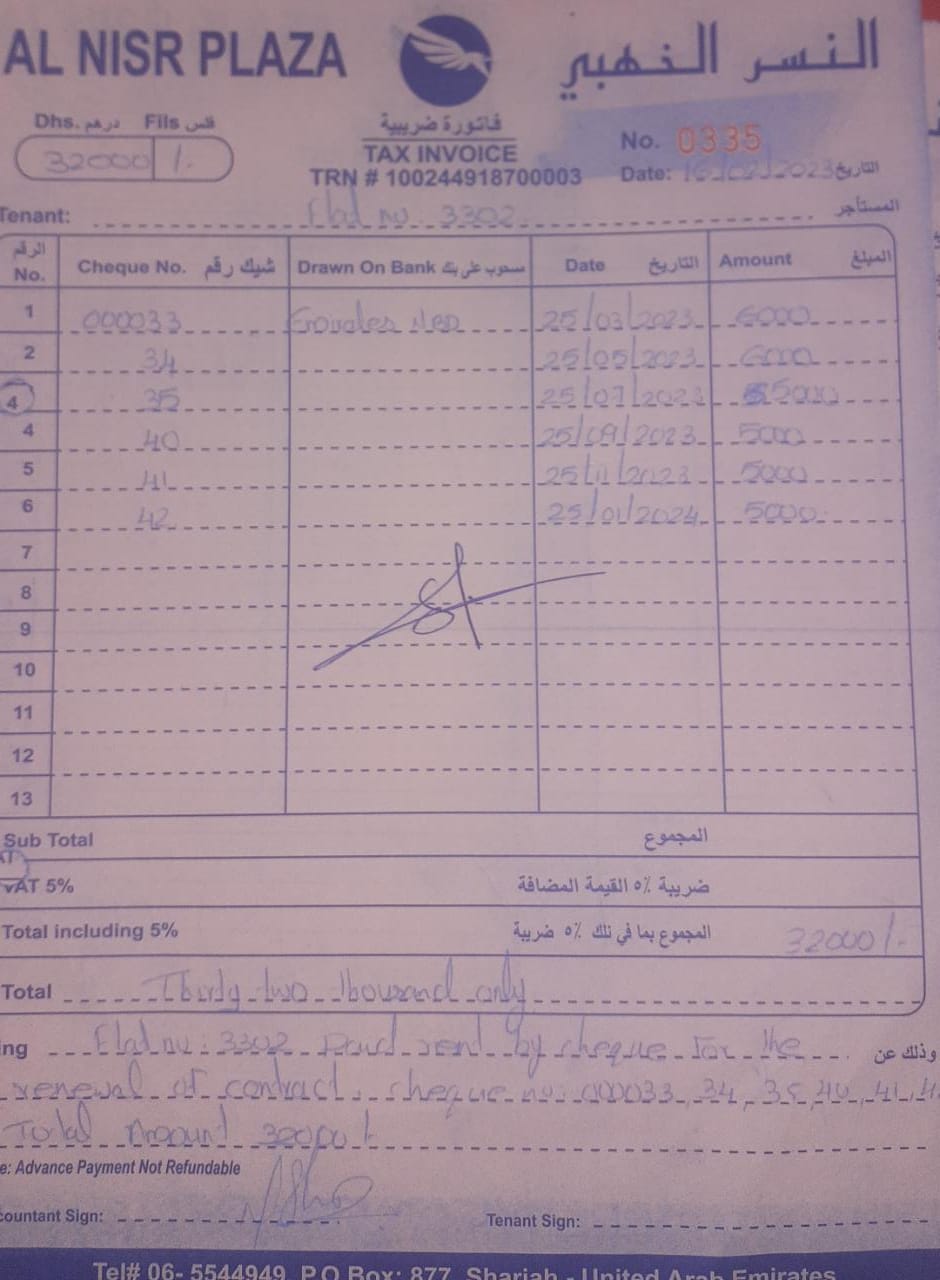 AL NISR PLAZA النسر الذهبي
Dhs. درهم Fils فلس
32000 /-
فاتورة ضريبية
TAX INVOICE
TRN # 100244918700003
No. 0335
Date: 16/02/2023 التاريخ
Tenant: Flat no. 3302 المستأجر
الرقم No. Cheque No. شيك رقم Drawn On Bank مسحوب على بنك Date التاريخ Amount المبلغ
1 000033 25/03/2023 6000
2 34 25/05/2023 6000
4 35 25/07/2023 5000
4 40 25/09/2023 5000
5 41 25/11/2023 5000
6 42 25/01/2024 5000
7
8
9
10
11
12
13
Sub Total المجموع
VAT 5% ضريبة ٥٪ القيمة المضافة
Total including 5% المجموع بما في ذلك ٥٪ ضريبة 32000/-
Total Thirty two thousand only
ing Flat no: 3302 Paid rent by cheque for the وذلك عن
renewal of contract. cheque no: 000033, 34, 35, 40, 41, 4
Total Amount 32000/
e: Advance Payment Not Refundable
countant Sign:
Tenant Sign:
Tel# 06- 5544949, P.O Box: 877, Sharjah - United Arab Emirates